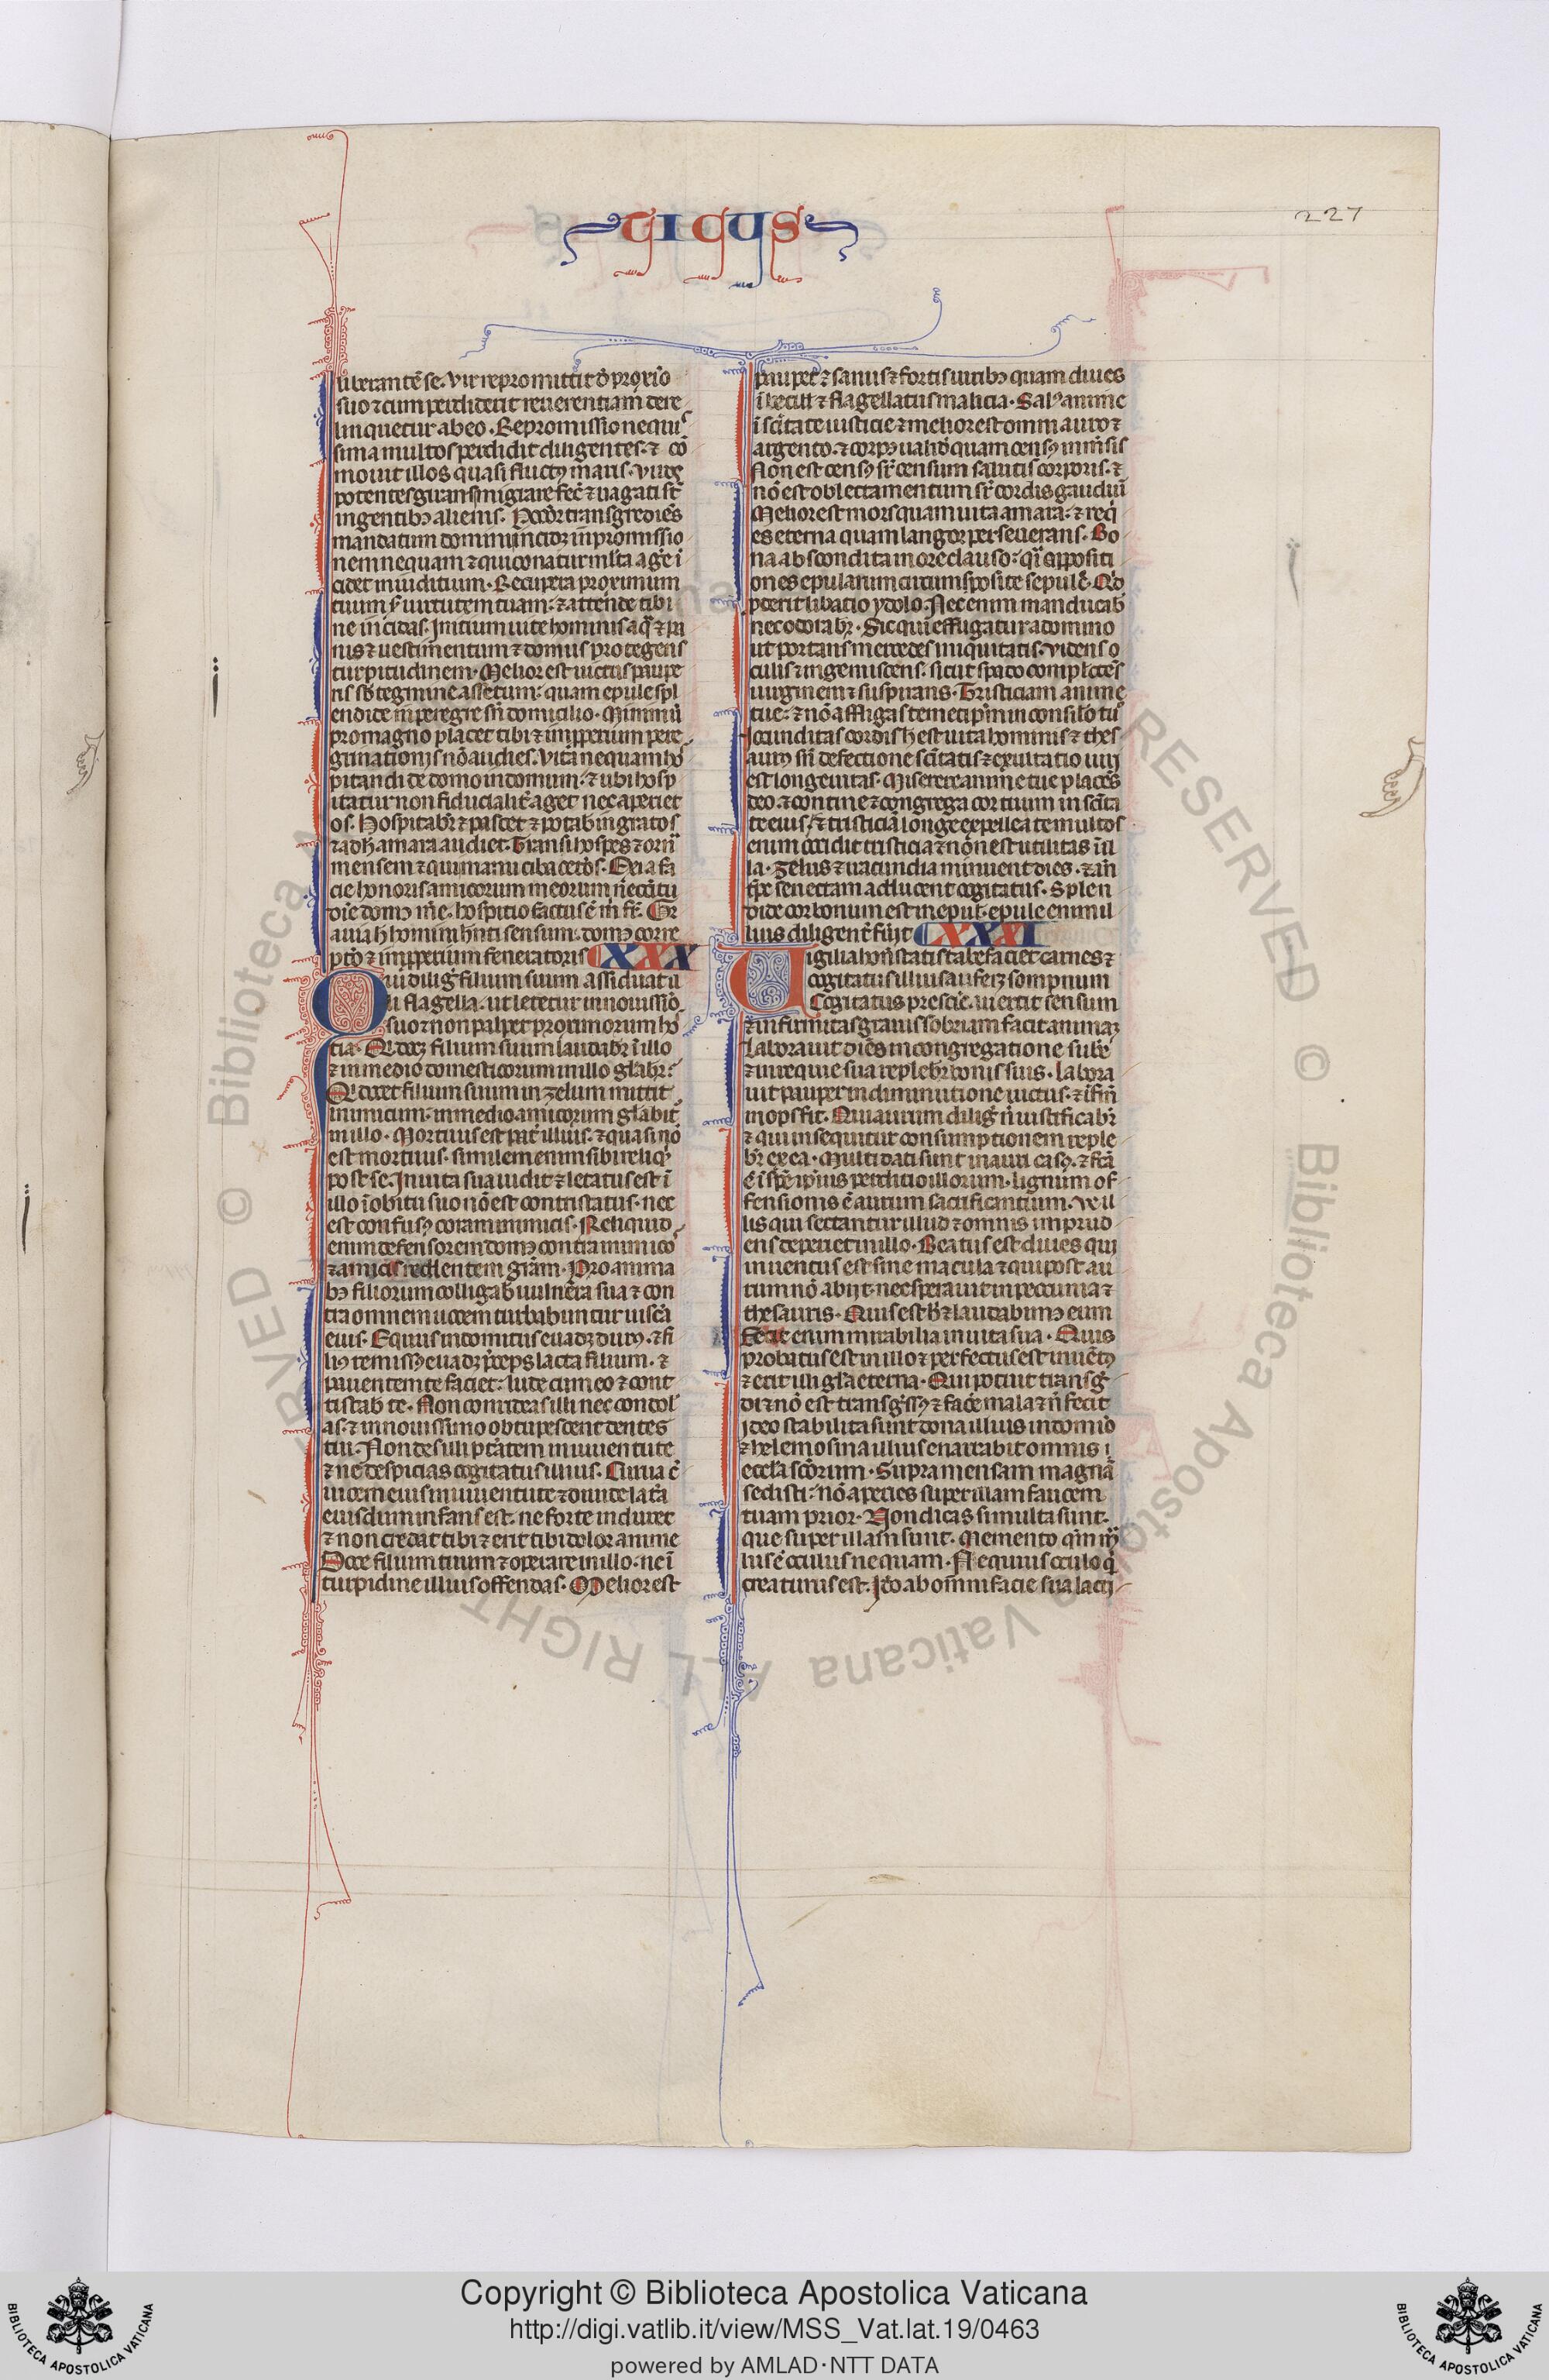 TICUS
227
liberantē se. Vir repromittit đ proxīo
suo ⁊ cum perdiderit reuerentiam dere
linquetur ab eo. Repromissio nequis
sima multos perdidit diligentes. ⁊ cō
mouit illos quasi fluctꝰ maris. Viros
potentes
ingentibꝫ alienis. transgrediēs
mandatum domini incidꝫ in promissio
nem nequam ⁊ qui conatur agere ī
cidet in iuditium. Recupera proximum
tuum virtutem tuam: ⁊ attende tibi
ne incidas. Initium uite hominis aq̄ ⁊ pa
nis ⁊ uestimentum ⁊ domus protegens
turpitudinem. Melior est uictus paupe
ris sb tegmine assetum: quam epule spl
endide in peregre sn̄ domicilio. Minimū
pro magno placet tibi ⁊ impperium pere
nō audies. Vita nequam hos
pitandi de domo in domum. ⁊ ubi hosp
itatur non fiducialit̄ aget nec aperiet
os. Hospitabr̄ ⁊ pascet ⁊ potab ingratos
⁊ ad h̄ amara audiet. Transi hospes ⁊ orna
mensem ⁊ que manu ciba ceteros. Exi a fa
cie honoris amicorum meorum
domꝰ me. hospitio factus ē m̄ fr̄. Gr
auia h̄ homini hn̄ti sensum. domꝰ corre
ptō ⁊ impperium feneratoris XXX
Qui dilig filium suum assiduat ił
li flagella. ut letetur in nouissīo
suo ⁊ non palpet proximorum hos
tia. Q docꝫ filium suum laudabr̄ ī illo
⁊ in medio domesticorum in illo glabr̄.
Q docet filium suum in zelum mittit
inimicum. in medio amicorum glabit̄
in illo. Mortuus est pat̄ illius. ⁊ quasi nō
est mortuus. similem enim sibi reliqꝰ
post se. In uita sua uidit ⁊ letatus est ī
illo ī obitu suo nō est contristatus. nec
est confusꝰ coram inimicis. Reliquid
enim defensorem domꝰ contra inimicos
⁊ amicis reddentem grām. Pro anima
bꝫ filiorum colligab uulnera sua ⁊ con
tra omnem uocem turbabuntur uiscā
eius. Equus indomitus euadꝫ durꝰ. ⁊ fi
liꝰ remissꝰ euadꝫ p̄ceps lacta filium. ⁊
pauentem te faciet. lude cum eo ⁊ cont
ristab te. Non corrideas illi nec condol
as. ⁊ in nouissimo obtupescent dentes
tui. Non des illi ptātem in iuuentute
⁊ ne despicias cogitatus illius. Curua c̄
uicem eius in iuuentute ⁊ tunde latā
eius dum infans est. ne forte induret
⁊ non credat tibi ⁊ erit tibi dolor anime
Doce filium tuum ⁊ operare in illo. ne ī
turpidine illius offendas. Melior est
pauper ⁊ sanus ⁊ fortis uiribꝫ quam diues
ībecill ⁊ flagellatus malicia. Salꝰ anime
ī scītate iusticie ⁊ melior est omni auro ⁊
argento. ⁊ corpꝰ ualidū quam censꝰ inm̄sis
Non est censꝰ sr̄ censum salutis corporis. ⁊
nō est oblectamentum sr̄ cordis gaudiū
Melior est mors quam uita amara. ⁊ req̄
es eterna quam langor perseuerans. Bo
na abscondita in ore clauso: qi appositi
ones epularum circumsposite sepulc̄. Qd
pderit libatio ydolo. Nec enim manducab
nec odorabr̄. Sic qui effugatur a domino
ut portans mercedes iniquitatis. Videns o
culis ⁊ ingemiscens. sicut spado complectēs
uirginem ⁊ suspirans. Tristiciam anime
tue. ⁊ nō affligas temetipm̄ in consilio tuo
Iocunditas cordis h̄ est uita hominis ⁊ thes
aurꝰ sn̄ defectione scītatis ⁊ exultatio uiri
est longeuitas. Miserere anime tue placēs
deo. ⁊ contine ⁊ congrega cor tuum in scīta
te eius. ⁊ tristiciā longe expelle a te multos
enim occidit tristicia ⁊ nō est utilitas ī il
la. Zelus ⁊ iracundia minuent dies. ⁊ an̄
senectam adducent cogitatus. Splen
dide cor bonum est in epul. epule enim il
lius diligent̄ fiūt XXXI
Uigilia honestatis tabefaciet carnes ⁊
cogitatus illius auferꝫ sompnum
Cogitatus presciē. uertit sensum
⁊ infirmitas grauis sobriam facit animaꝫ
Laborauit diues in congregatione sube
⁊ in requie sua replebr̄ bonis suis. labora
uit pauper in diminutione uictus. ⁊ ī fin̄
inops fit. Qui aurum dilig n̄ iustificabr̄
⁊ qui insequitur consumptionem reple
br̄ ex ea. Multi dati sunt in auri casꝰ. ⁊ fcā
ē ī spē ipīus perditio illorum. lignum of
fensionis ē aurum sacrificantium. Ve il
lis qui sectantur illud ⁊ omnis imprud
ens deperiet in illo. Beatus est diues qui
inuentus est sine macula ⁊ qui post au
rum nō abijt. nec sperauit in peccunia ⁊
thesauris. Quis est h̄ ⁊ laudabimꝰ eum
Fecit enim mirabilia in uita sua. Quis
probatus est in illo ⁊ perfectus est inuētꝰ
⁊ erit illi gla eterna. Qui potuit transg
di ⁊ nō est transgssꝰ ⁊ facē mala ⁊ n̄ fecit
ideo stabilita sunt bona illius in domīo
⁊ helemosina illius enarrabit omnis
eccła scōrum. Supra mensam magnā
sedisti: nō aperies super illam faucem
tuam prior. Non dicas si multa sunt.
que super illam sunt. Memento qm̄ ma
lus ē oculus nequam. Nequius oculo qd
creatum est. Ido ab omni facie sua lacrī
Copyright © Biblioteca Apostolica Vaticana
http://digi.vatlib.it/view/MSS_Vat.lat.19/0463
powered by AMLAD·NTT DATA
BIBLIOTECA APOSTOLICA VATICANA
BIBLIOTECA APOSTOLICA VATICANA